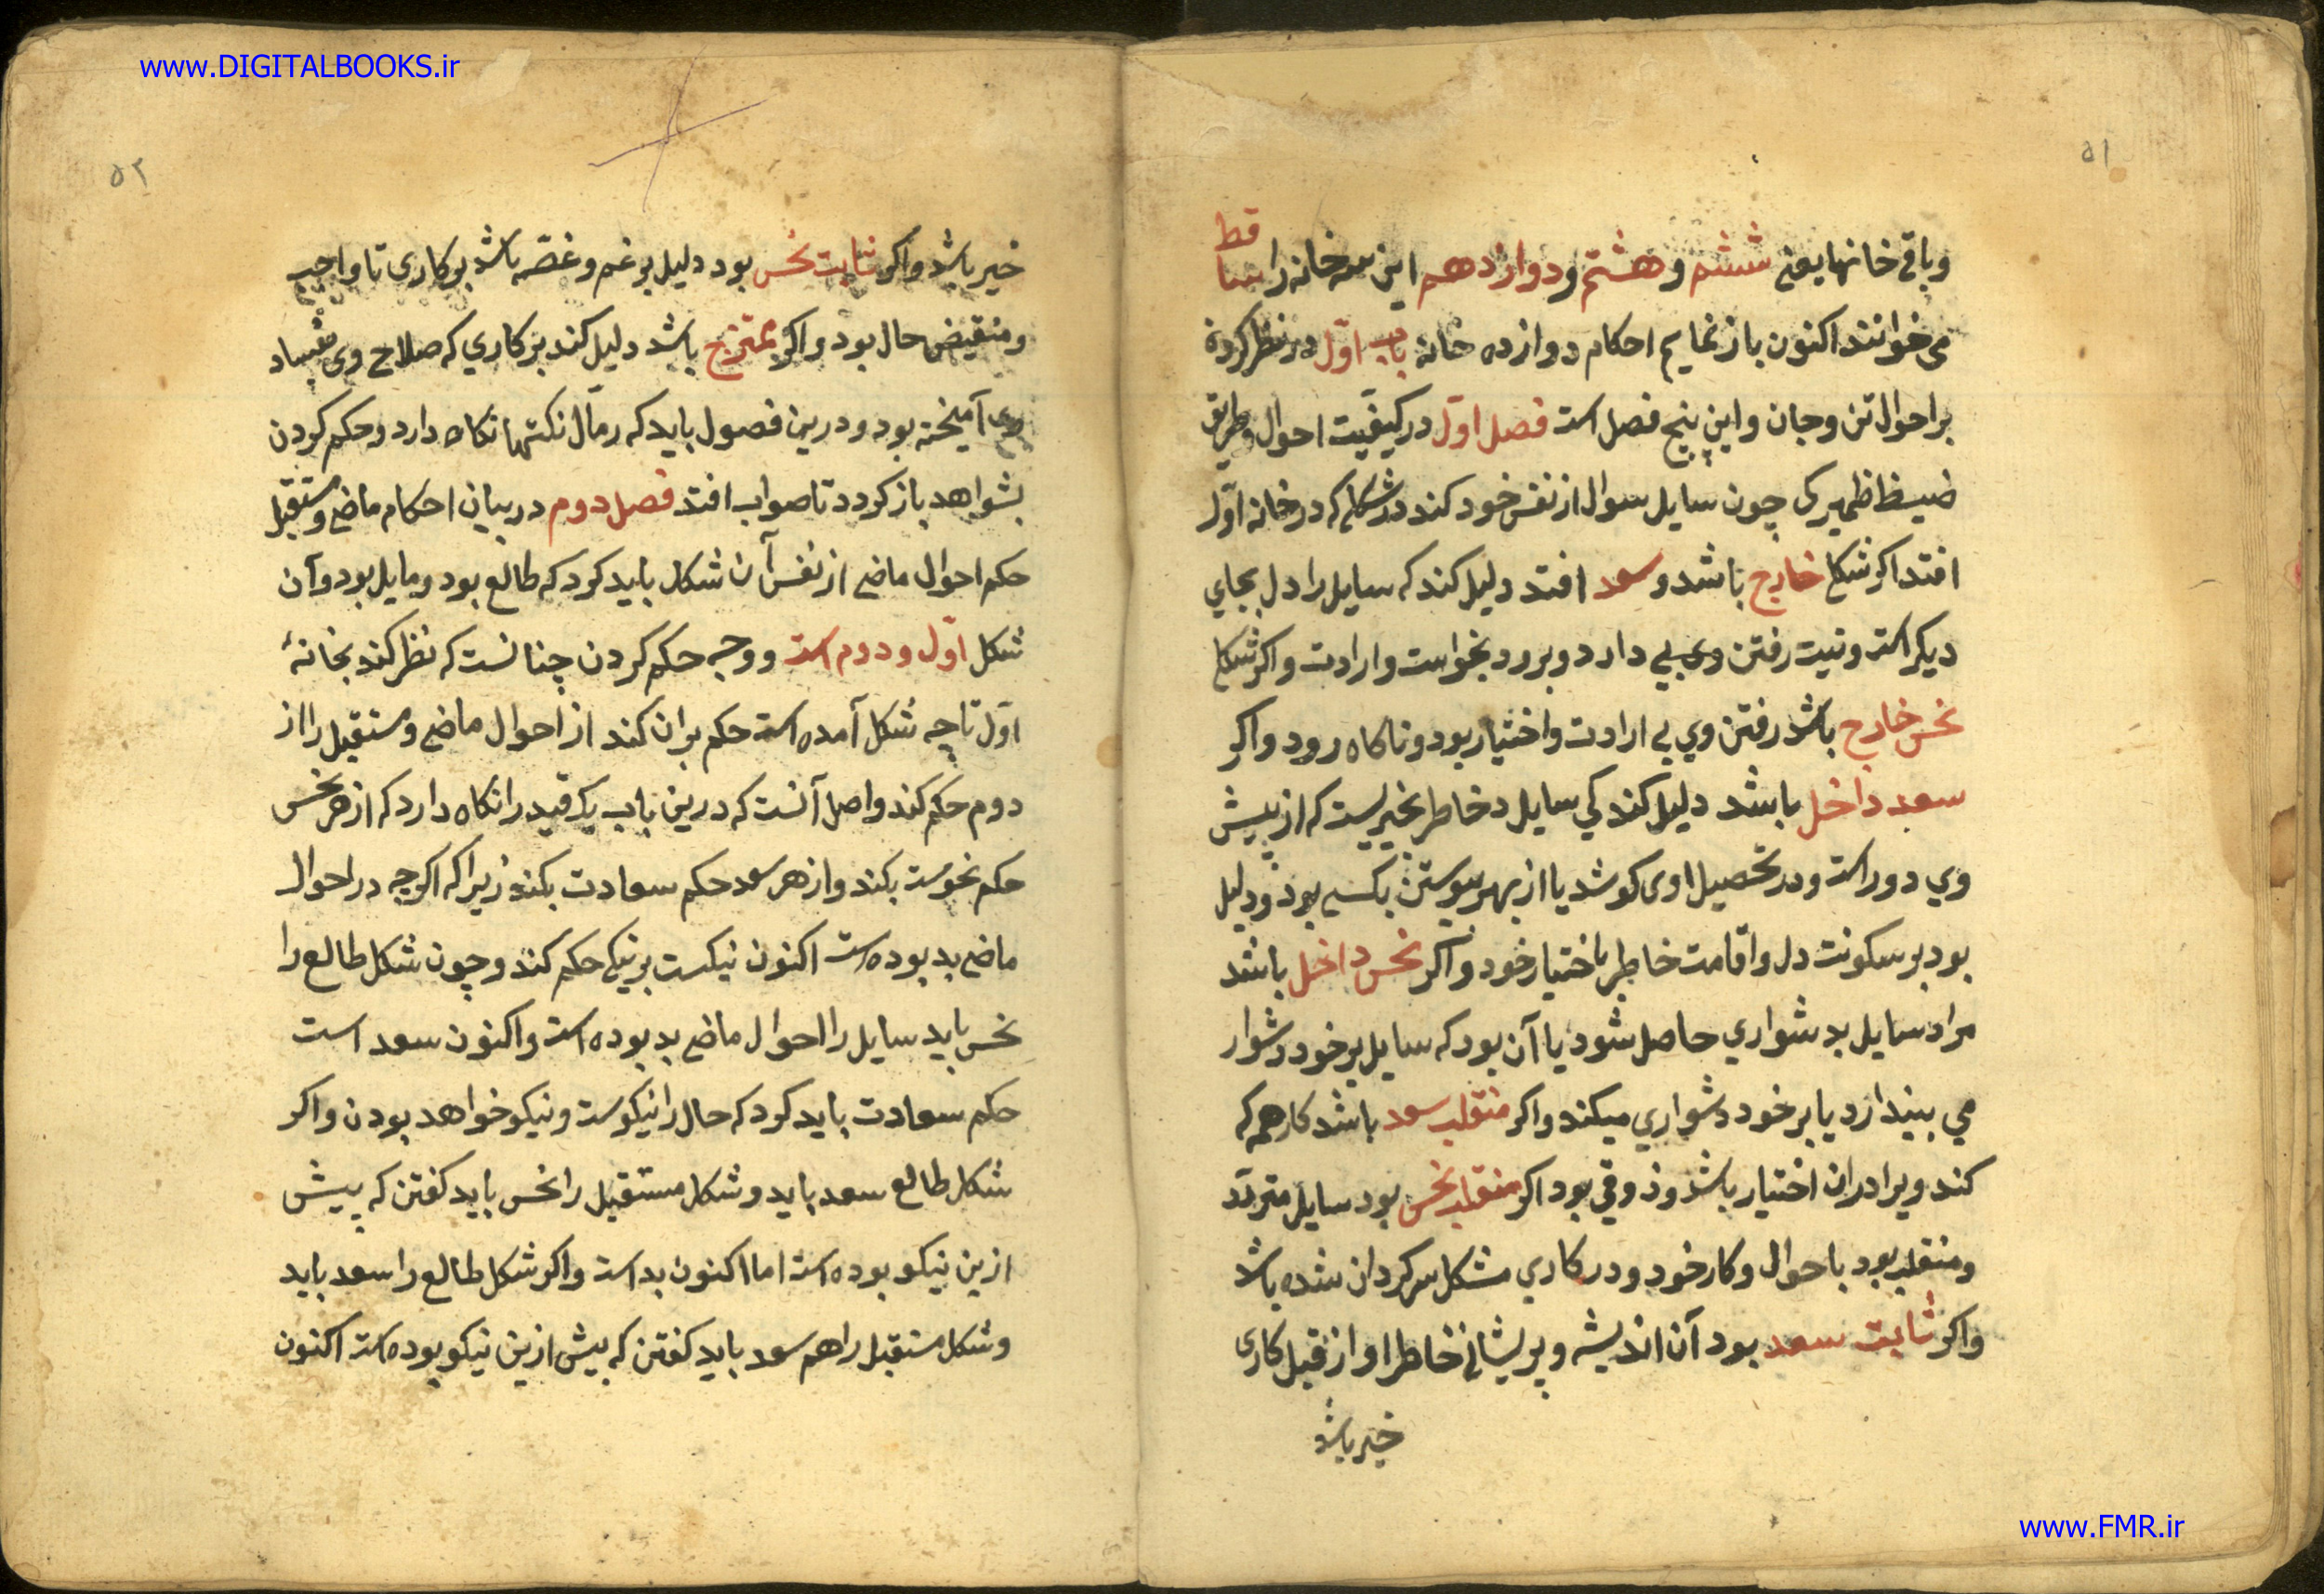 www.DIGITALBOOKS.ir
۵۱
وباقی خانها یعنی ششم و هشتم و دوازدهم این سه خانه را ساقط
می خوانند اکنون باز نمایم احکام دوازده خانه باب اوّل در نظر کردن
بر احوال تن و جان و این پنج فصل است فصل اوّل در کیفیت احوال و طریق
ضمیر کی چون سایل سوال از نفس خود کند در شکلی که در خانه اوّل
افتد اکر شکل خارج باشد و سعد افتد دلیل کند که سایل را دل بجای
دیکر است و نیت رفتن دارد و برود بخواست و ارادت و اکر شکل
نحس خارج باشد رفتن وی بی ارادت و اختیار بود و ناکاه رود و اکر
سعد داخل باشد دلیل کند کی سایل خاطر بخیریست که از پیش
وی دور است و در تحصیل او می کوشد یا از بهر پیوستن بکسی بود و دلیل
بود بر سکونت دل و اقامت خاطر باختیار خود و اکر نحس داخل باشد
مراد سایل بدشواری حاصل شود یا آن بود که سایل بر خود دشوار
می بیندارد یا بر خود دشواری میکند و اکر منقلب سعد باشد کار هم که
کند ویرا در ان اختیار باشد و ذوقی بود اکر منقلب نحس بود سایل متردّد
و منقلب بود با حوال و کار خود و در کاری مشکل سرکردان شده باشد
و اکر ثابت سعد بود آن اندیشه و پریشانی خاطر او از قبل کاری
خیر باشد
۵۲
خیر باشد و اکر ثابت نحس بود دلیل بر غم و غصّه باشد بر کاری نا واجب
و منقیض حال بود و اکر ممتزج باشد دلیل کند بر کاری که صلاح وی بفساد
وی آمیخته بود و درین فصول باید که رمّال نکتها نکاه دارد و حکم کردن
بشواهد باز کردد تا صواب افتد فصل دوم در بیان احکام ماضی و مستقبل
حکم احوال ماضی از نفس آن شکل باید کرد که طالع بود و مایل بود و آن
شکل اوّل و دوم است و وجه حکم کردن چنانست که نظر کند بخانهٔ
اوّل تا چه شکل آمده است حکم بران کند از احوال ماضی و مستقبل را از
دوم حکم کند و اصل آنست که درین باب یک قید را نکاه دارد که از هر نحس
حکم نحوست بکند و از هر سعد حکم سعادت بکند زیرا که اکرچه در احوال
ماضی بد بوده است اکنون نیکست بر نیکی حکم کند و چون شکل طالع را
نحس یابد سایل را احوال ماضی بد بوده است و اکنون سعد است
حکم سعادت باید کرد که حال را نیکوست و نیکو خواهد بودن و اکر
شکل طالع سعد یابد و شکل مستقبل را نحس باید کفتن که پیش
ازین نیکو بوده است اما اکنون بد است و اکر شکل طالع را سعد یابد
و شکل مستقبل را هم سعد باید کفتن که پیش ازین نیکو بوده است اکنون
www.FMR.ir